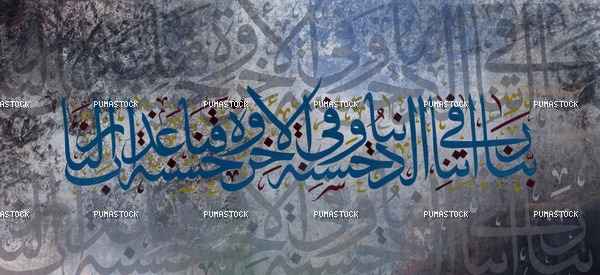 ربنا آتنا في الدنيا حسنة وفي الآخرة حسنة وقنا عذاب النار
PUMASTOCK PUMASTOCK PUMASTOCK PUMASTOCK PUMASTOCK
PUMASTOCK PUMASTOCK PUMASTOCK PUMASTOCK PUMASTOCK